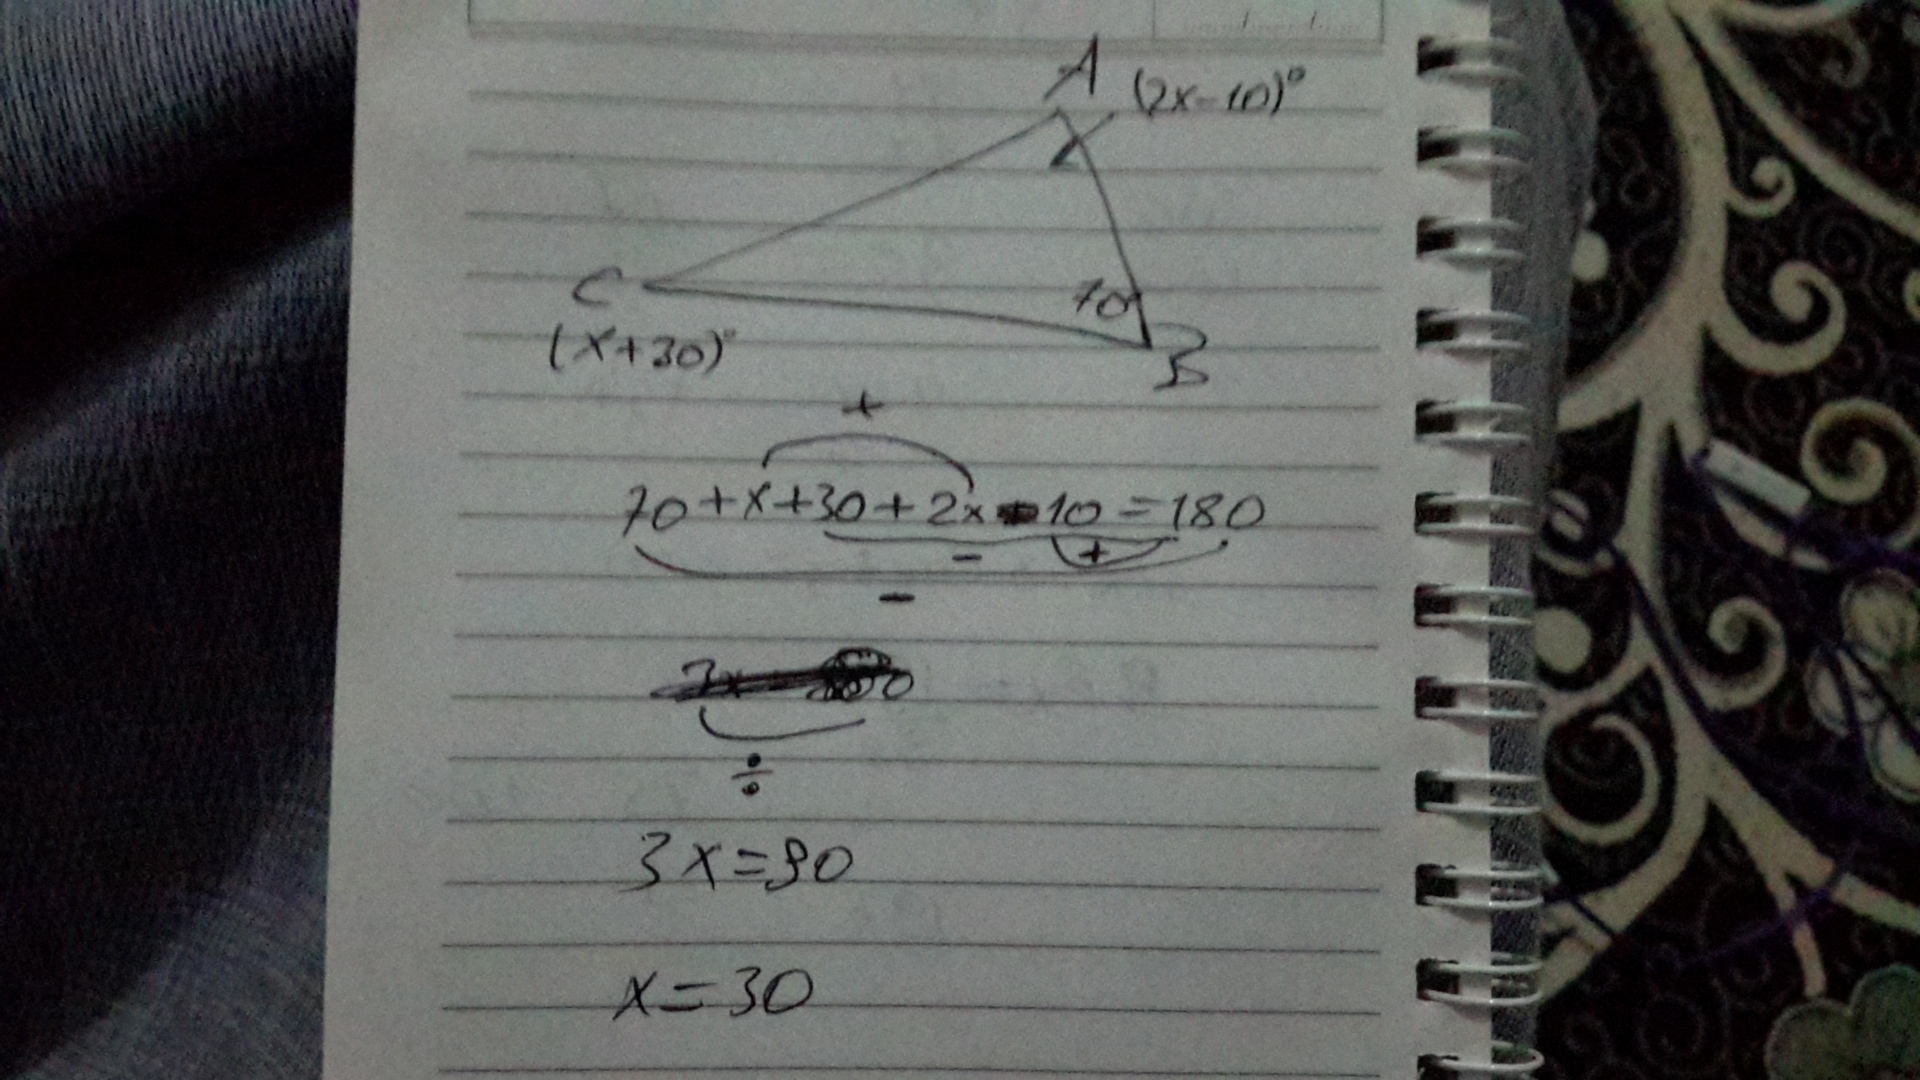 A (2x-10)°
C 70°
(x+30)° B
+
70+x+30+2x-10=180
- +
-
÷
3x=90
x=30